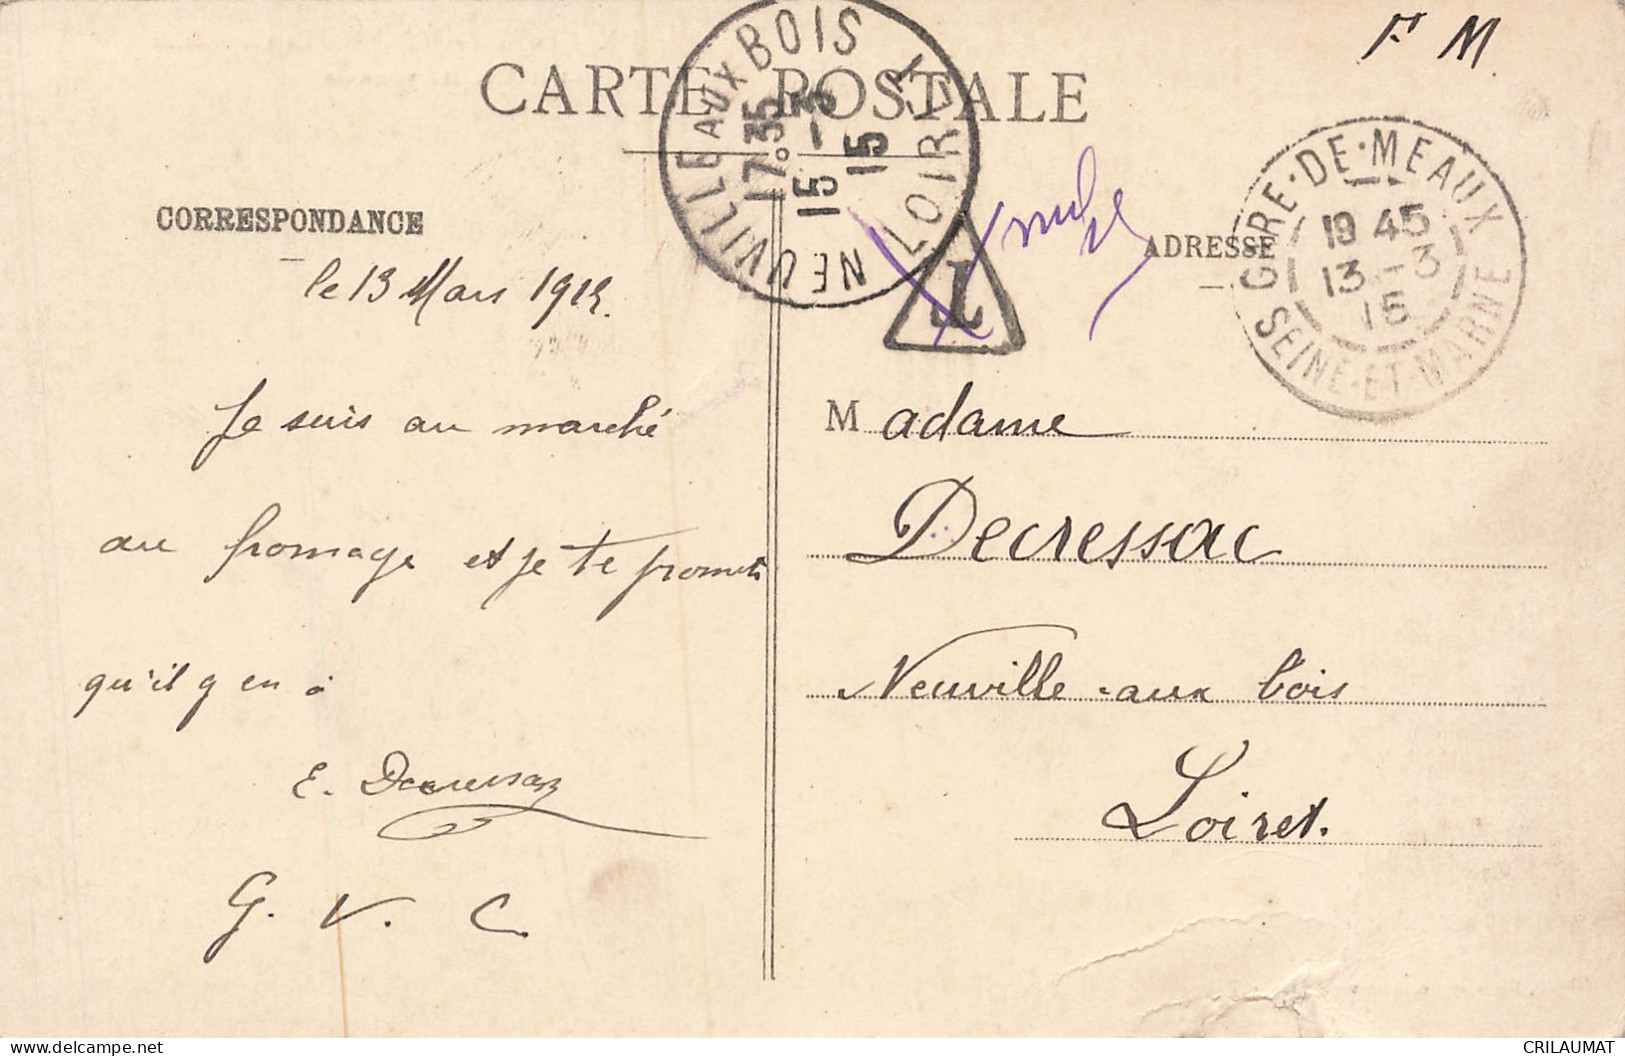 F M
CARTE POSTALE
NEUVILLE AUX BOIS LOIRET
17 35
15 - 3
15
T
GRE·DE·MEAUX
19 45
13 - 3
15
SEINE·ET·MARNE
CORRESPONDANCE
ADRESSE
le 13 Mars 1915.
Je suis au marché
au fromage et je te promets
qu'il y en a
E. Decressac
G. V. C.
Madame
Decressac
Neuville-aux bois
Loiret.
delcampe.net
CRILAUMAT